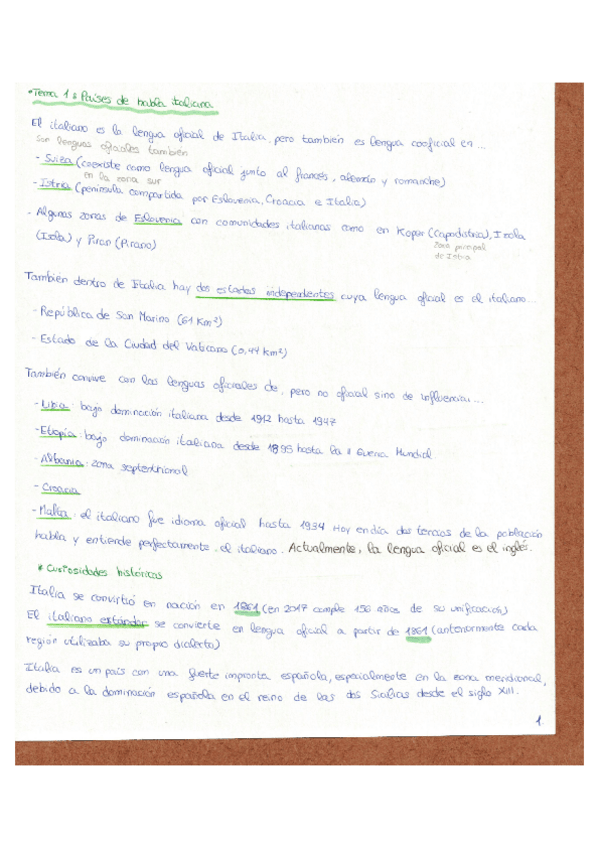 • Tema 1: Países de habla italiana
El italiano es la lengua oficial de Italia, pero también es lengua cooficial en ...
Son lenguas oficiales también
- Suiza (coexiste como lengua oficial junto al francés, alemán y romanche)
en la zona sur
- Istria (península compartida por Eslovenia, Croacia e Italia)
- Algunas zonas de Eslovenia con comunidades italianas como en Koper (Capodistria), Izola
(Isola) y Piran (Pirano)
zona principal
de Istria
También dentro de Italia hay dos estados independientes cuya lengua oficial es el italiano...
- República de San Marino (61 Km²)
- Estado de la Ciudad del Vaticano (0,44 km²)
También convive con las lenguas oficiales de, pero no oficial sino de influencia: ...
- Libia: bajo dominación italiana desde 1912 hasta 1947
- Etiopía: bajo dominación italiana desde 1895 hasta la II Guerra Mundial
- Albania: zona septentrional
- Croacia
- Malta: el italiano fue idioma oficial hasta 1934 Hoy en día dos tercios de la población
habla y entiende perfectamente el italiano. Actualmente, la lengua oficial es el inglés.
* Curiosidades históricas
Italia se convirtió en nación en 1861 (en 2017 cumple 156 años de su unificación)
El italiano estándar se convierte en lengua oficial a partir de 1861 (anteriormente cada
región utilizaba su propio dialecto)
Italia es un país con una fuerte impronta española, especialmente en la zona meridional,
debido a la dominación española en el reino de las dos Sicilias desde el siglo XIII.
1.